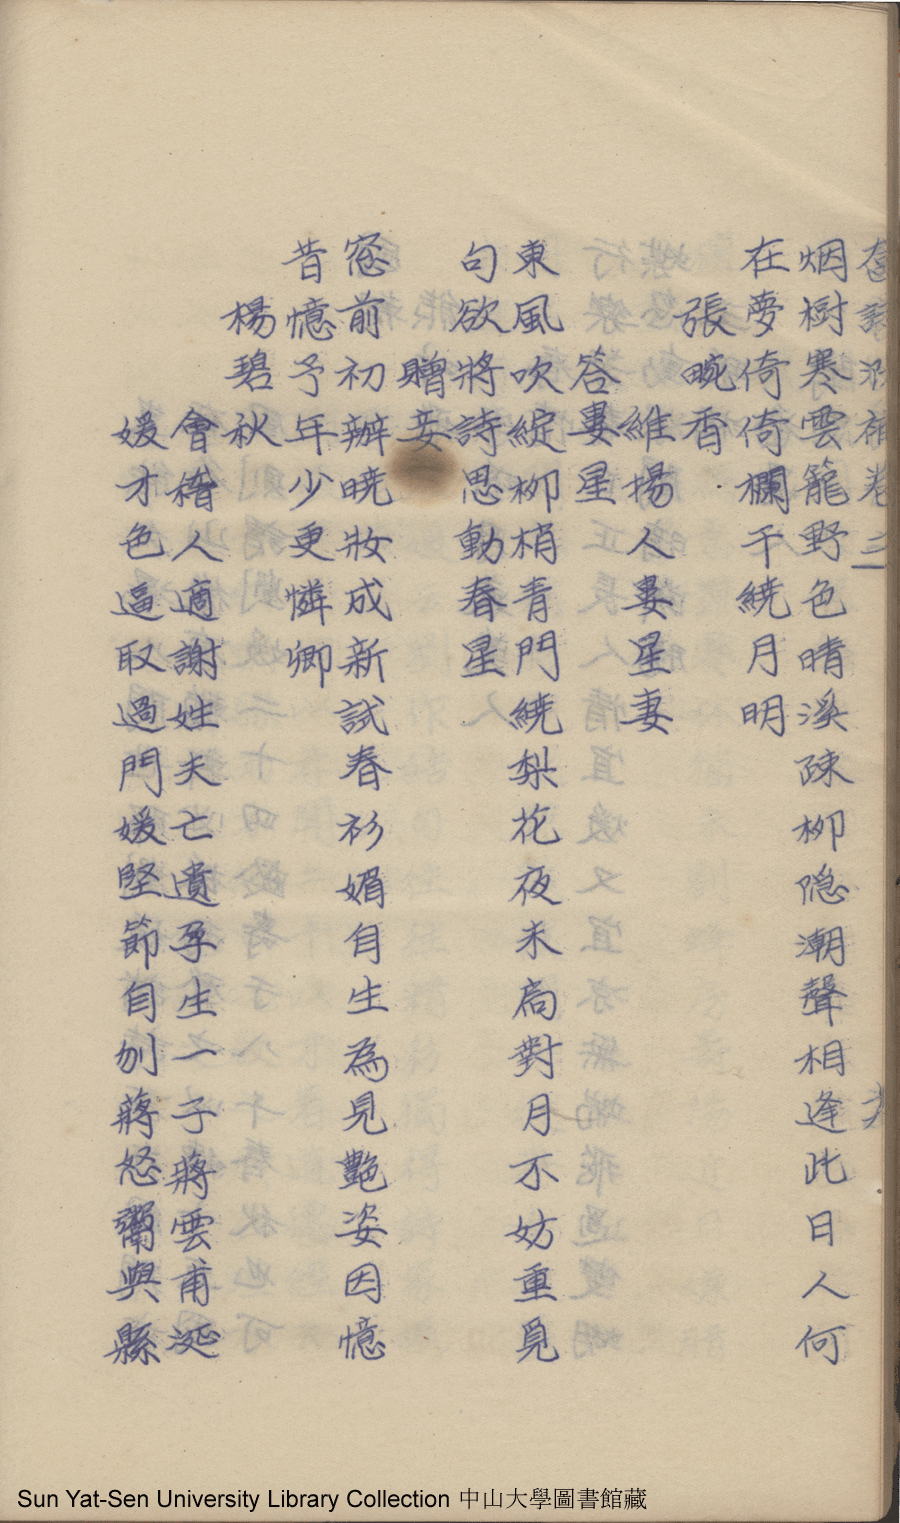 卷三
烟樹寒雲籠野色晴溪疎柳隐潮聲相逢此日人何
在夢倚倚欄干繞月明
張畹香
維揚人婁星妻
答婁星
東風吹綻柳梢青門繞梨花夜未扃對月不妨重覓
句欲將詩思動春星
贈妾
窓前初辦曉妝成新試春衫媚自生為見艷姿因憶
昔憶予年少更憐卿
楊碧秋
會稽人適謝姓夫亡遺孕生一子蔣雲甫涎
媛才色逼取過門媛堅節自刎蔣怒鬻與縣
Sun Yat-Sen University Library Collection 中山大學圖書館藏